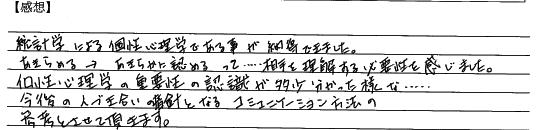 【感想】
統計学による個性心理学である事が納得できました。
あきらめる→あきらかに認めるって……相手を理解する必要性を感じました。
個性心理学の重要性の認識が多少分かった様な……
今後の人づき合いの指針となるコミュニケーション方法の
参考とさせて頂きます。